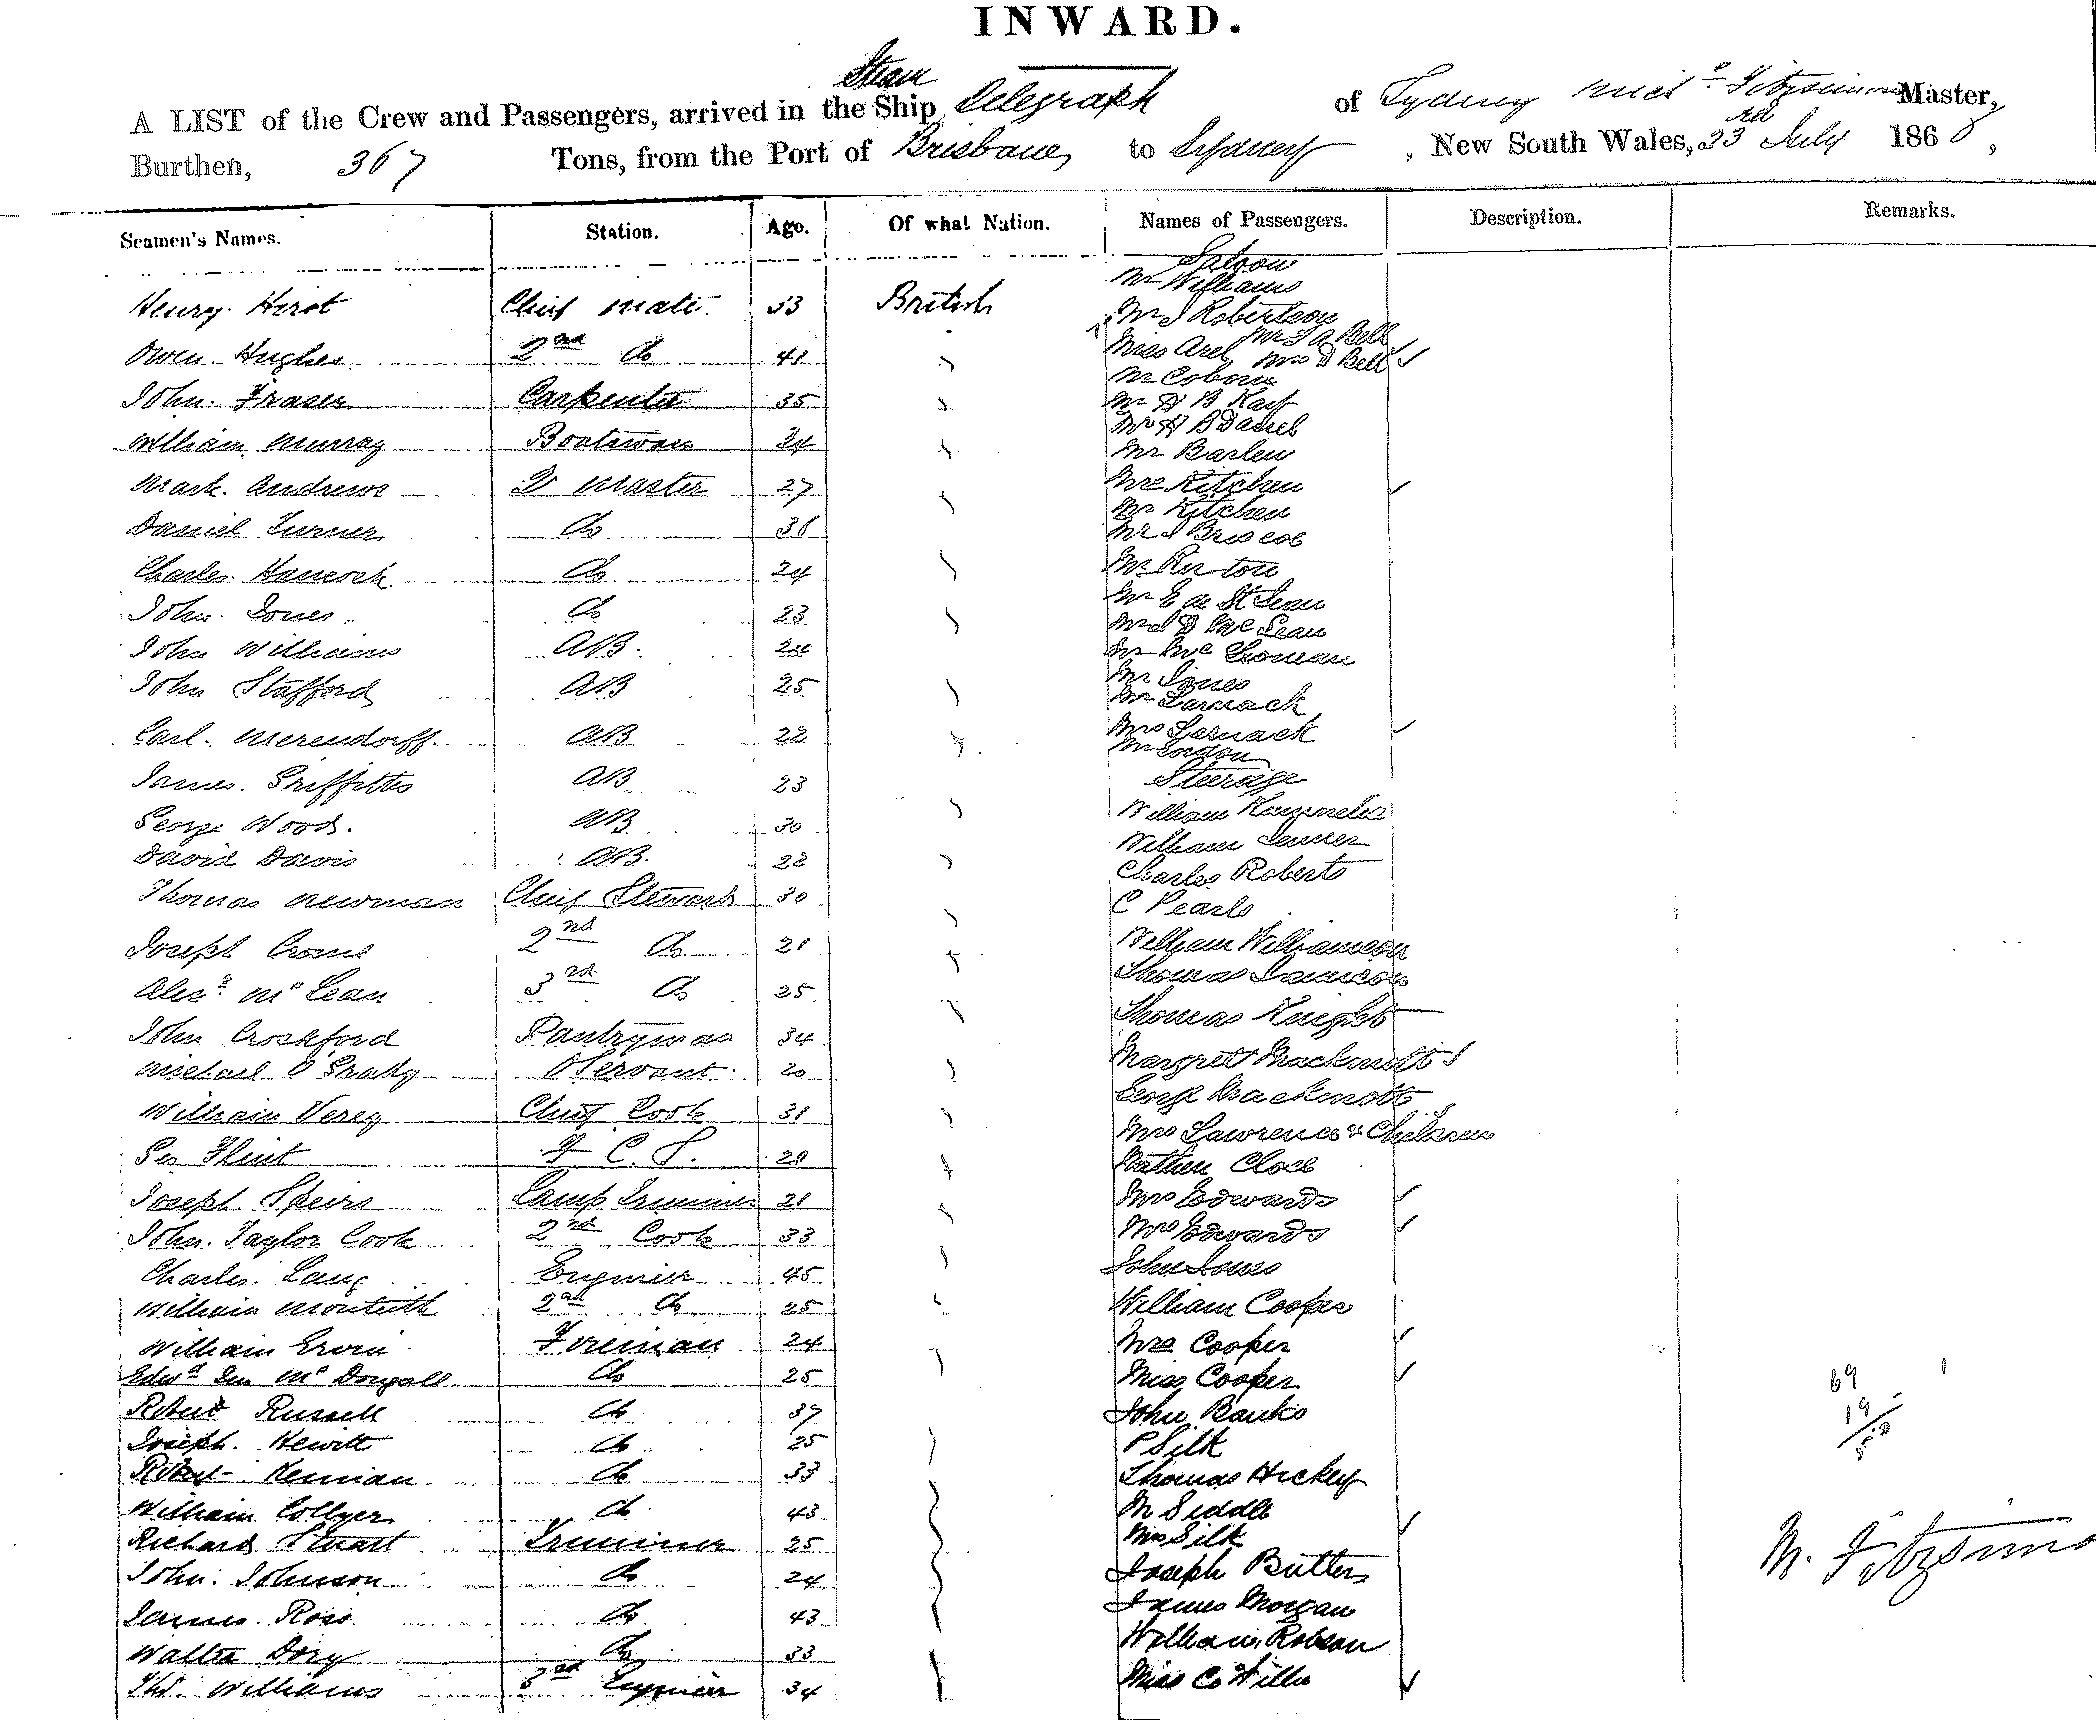 INWARD.
Steam
A LIST of the Crew and Passengers, arrived in the Ship Telegraph of Sydney Fitzsimmons Master,
Burthen, 367 Tons, from the Port of Brisbane to Sydney, New South Wales, 23rd July 1868,
Seamen's Names. Station. Age. Of what Nation. Names of Passengers. Description. Remarks.
Saloon
Mr Williams
Henry Hirst Chief Mate 53 British
Mr J Robertson
Mr J A Bell
Owen Hughes 2nd Do 41 Miss
Mrs D Bell
Mr Coborn
John Fraser Carpenter 35 Mr H B
Mr H B Daniel
William Murray Boatswain Mr Barlew
Mark Andrews Q Master 27 Mrs Kitchen
Mr Kitchen
Daniel Turner Do Mr J Briscoe
Charles Hancock Do 24 Mr
Mr E de St Jean
John Jones Do 23 Mr J D McLean
John Williams AB
John Stafford AB 25 Mr Jones
Mr Larnack
Carl Merendorff AB 22 Mrs Larnack
Steerage
James Griffiths AB 23
William
George Wood AB 30
William
David Davis AB 22 Charles Roberts
Thomas Newman Chief Steward 30 C Pearls
Joseph 2nd Do 21 William Williamson
Thomas
Alexr McLean 3rd Do 25
Thomas Knight
John Crockford Pantryman 34
Michael O'Grady Servant 20 Margrett Mackmott
George Mackmott
William Verey Chief Cook 31
Mrs Lawrence & Children
Geo Flint F C S.
Close
Joseph Speirs Lamp Trimmer 21 Mrs Edwards
John Taylor Cook 2nd Cook 33 Mrs Edwards
Charles Lang Engineer 45 John Jones
William Monteith 2nd Do 25 William Cooper
William Erwin Fireman 24 Mrs Cooper
McDougall Do 25 Miss Cooper 69
Robert Russell Do 37 John Banks 19
Joseph Hewitt Do 25 P Silk 50
Robert Do 33 Thomas Hickey
William Collyer Do 43 M Siddle
Richard Stuart Trimmer 25 Mrs Silk
M. Fitzsimmons
John Johnson Do 24 Joseph Butters
James Ross Do 43 James Morgan
Walter Dory Do 33 William Robson
Thos Williams 3rd Engineer 34 Miss C Willis